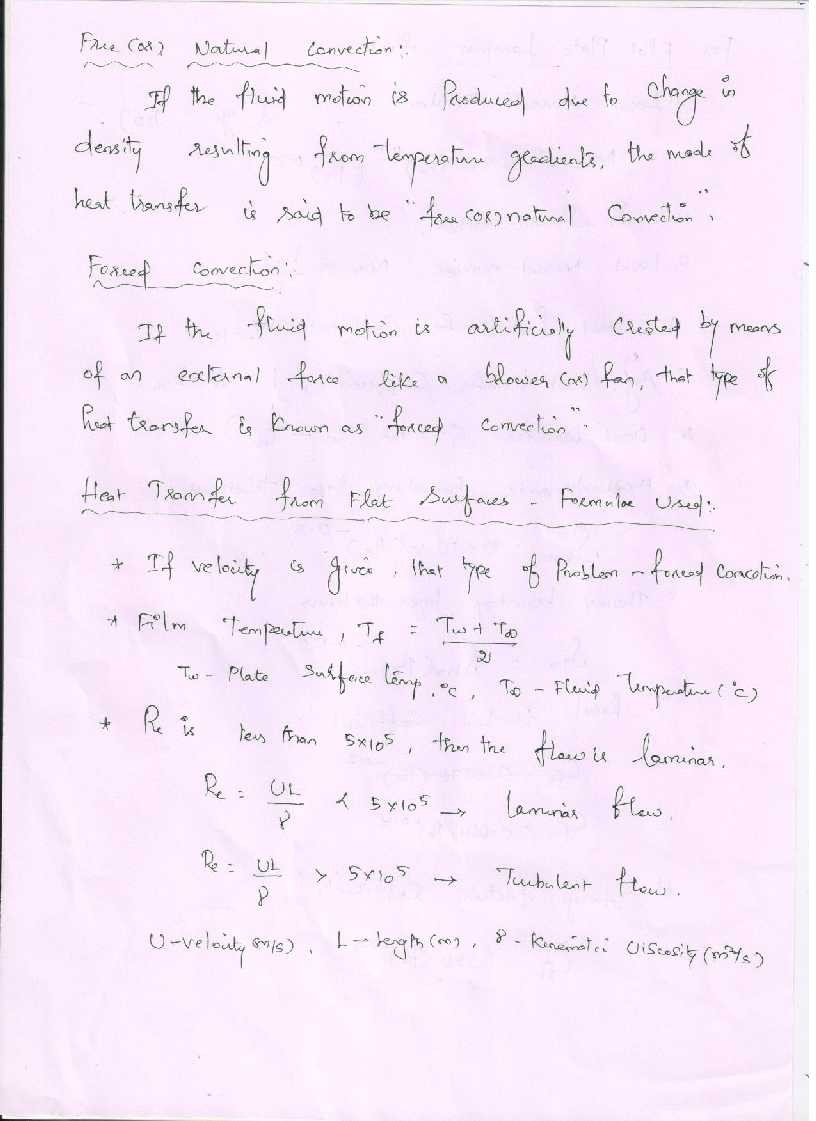 Free (or) Natural Convection:-
If the fluid motion is Produced due to change in
density resulting from temperature gradients, the mode of
heat transfer is said to be "free (or) natural Convection".
Forced convection:-
If the fluid motion is artificially created by means
of an external force like a blower (or) fan, that type of
heat transfer is known as "forced convection".
Heat Transfer from Flat Surfaces - Formulae Used:-
* If velocity is given, that type of Problem - forced Convection.
* Film Temperature, Tf = Tw + T∞
2
Tw - Plate Surface temp, °C, T∞ - Fluid Temperature (°C)
* Re is less than 5×10⁵, then the flow is laminar.
Re = UL/ϑ < 5×10⁵ → Laminar flow.
Re = UL/ϑ > 5×10⁵ → Turbulent flow.
U - velocity (m/s), L - Length (m), ϑ - Kinematic Viscosity (m²/s)